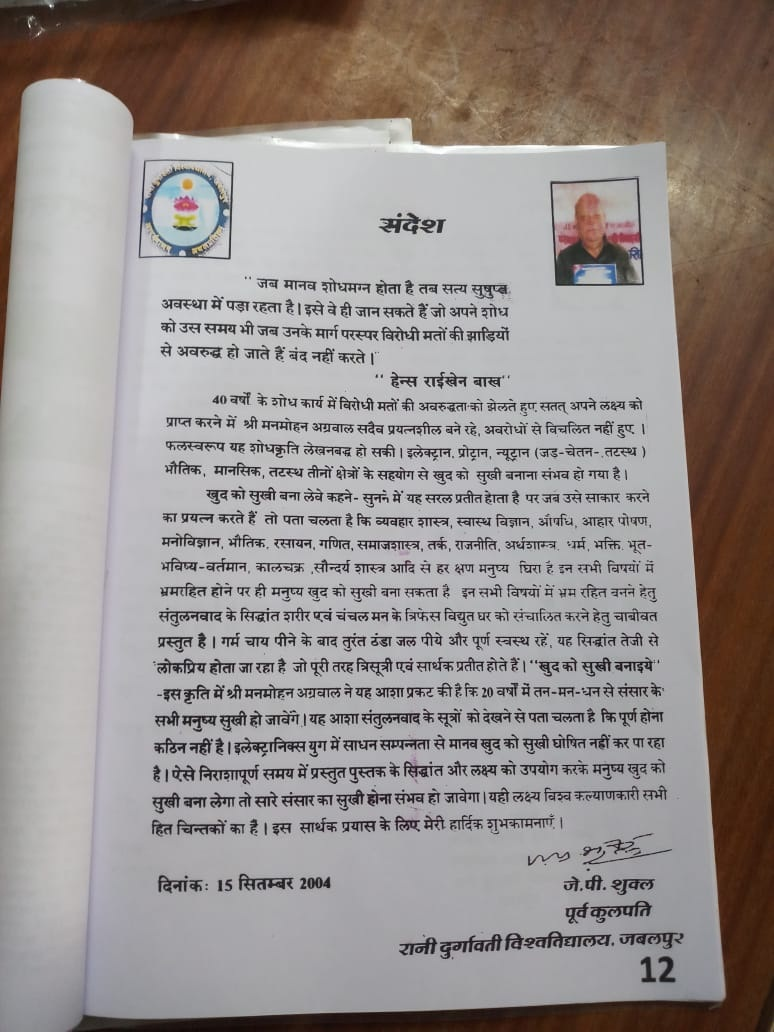 संदेश
" जब मानव शोधमग्न होता है तब सत्य सुषुप्त
अवस्था में पड़ा रहता है। इसे वे ही जान सकते हैं जो अपने शोध
को उस समय भी जब उनके मार्ग परस्पर विरोधी मतों की झाड़ियों
से अवरुद्ध हो जाते हैं बंद नहीं करते।"
" हेन्स राईखेन बाख"
40 वर्षों के शोध कार्य में विरोधी मतों की अवरुद्धता को झेलते हुए सतत् अपने लक्ष्य को
प्राप्त करने में श्री मनमोहन अग्रवाल सदैव प्रयत्नशील बने रहे, अवरोधों से विचलित नहीं हुए ।
फलस्वरूप यह शोधकृति लेखनबद्ध हो सकी। इलेक्ट्रान, प्रोट्रान, न्यूट्रान (जड़-चेतन-तटस्थ )
भौतिक, मानसिक, तटस्थ तीनों क्षेत्रों के सहयोग से खुद को सुखी बनाना संभव हो गया है।
खुद को सुखी बना लेवे कहने- सुनने में यह सरल प्रतीत होता है पर जब उसे साकार करने
का प्रयत्न करते हैं तो पता चलता है कि व्यवहार शास्त्र, स्वास्थ विज्ञान, औषधि, आहार पोषण,
मनोविज्ञान, भौतिक, रसायन, गणित, समाजशास्त्र, तर्क, राजनीति, अर्थशास्त्र, धर्म, भक्ति, भूत-
भविष्य-वर्तमान, कालचक्र ,सौन्दर्य शास्त्र आदि से हर क्षण मनुष्य घिरा है इन सभी विषयों में
भ्रमरहित होने पर ही मनुष्य खुद को सुखी बना सकता है इन सभी विषयों में भ्रम रहित बनने हेतु
संतुलनवाद के सिद्धांत शरीर एवं चंचल मन के त्रिफेस विद्युत घर को संचालित करने हेतु चाबीवत
प्रस्तुत है। गर्म चाय पीने के बाद तुरंत ठंडा जल पीये और पूर्ण स्वस्थ रहें, यह सिद्धांत तेजी से
लोकप्रिय होता जा रहा है जो पूरी तरह त्रिसूत्री एवं सार्थक प्रतीत होते हैं। "खुद को सुखी बनाइये"
-इस कृति में श्री मनमोहन अग्रवाल ने यह आशा प्रकट की है कि 20 वर्षों में तन-मन-धन से संसार के
सभी मनुष्य सुखी हो जावेंगे। यह आशा संतुलनवाद के सूत्रों को देखने से पता चलता है कि पूर्ण होना
कठिन नहीं है। इलेक्ट्रानिक्स युग में साधन सम्पन्नता से मानव खुद को सुखी घोषित नहीं कर पा रहा
है। ऐसे निराशापूर्ण समय में प्रस्तुत पुस्तक के सिद्धांत और लक्ष्य को उपयोग करके मनुष्य खुद को
सुखी बना लेगा तो सारे संसार का सुखी होना संभव हो जावेगा। यही लक्ष्य विश्व कल्याणकारी सभी
हित चिन्तकों का है। इस सार्थक प्रयास के लिए मेरी हार्दिक शुभकामनाएँ।
दिनांक: 15 सितम्बर 2004
जे.पी. शुक्ल
पूर्व कुलपति
रानी दुर्गावती विश्वविद्यालय, जबलपुर
12